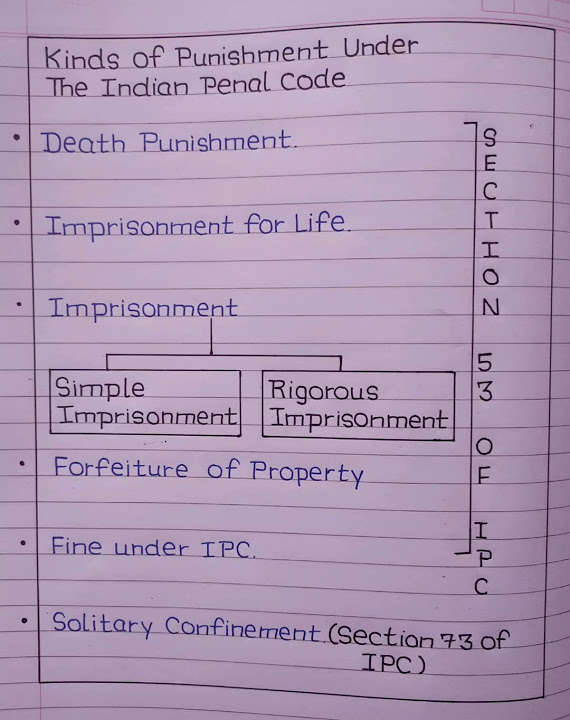 Kinds of Punishment Under
The Indian Penal Code
• Death Punishment.
• Imprisonment for Life.
• Imprisonment
Simple
Imprisonment
Rigorous
Imprisonment
• Forfeiture of Property
• Fine under IPC.
SECTION 53 OF IPC
• Solitary Confinement.(Section 73 of
IPC)